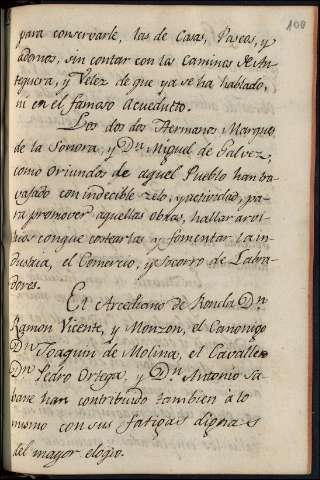 100
para conservarle, las de Casas, Paseos, y
adornos, sin contar con los Caminos de An-
tequera, y Velez de que ya se ha hablado,
ni en el famoso Acueducto.
Los dos dos Hermanos Marques
de la Sonora, y Dn. Miguel de Galvez,
como Oriundos de aquel Pueblo han tra
vajado con indecible zelo, y actividad, pa-
ra promover aquellas obras, hallar arvi-
trios con que costearlas y fomentar la in-
dustria, el Comercio, y Socorro de Labra-
dores.
El Arcediano de Ronda Dn.
Ramon Vicente, y Monzon, el Canonigo
Dn. Joaquin de Molina, el Cavallero
Dn. Pedro Ortega, y Dn. Antonio
han contribuido tambien a lo
mismo con sus fatigas dignas
del mayor elogio.